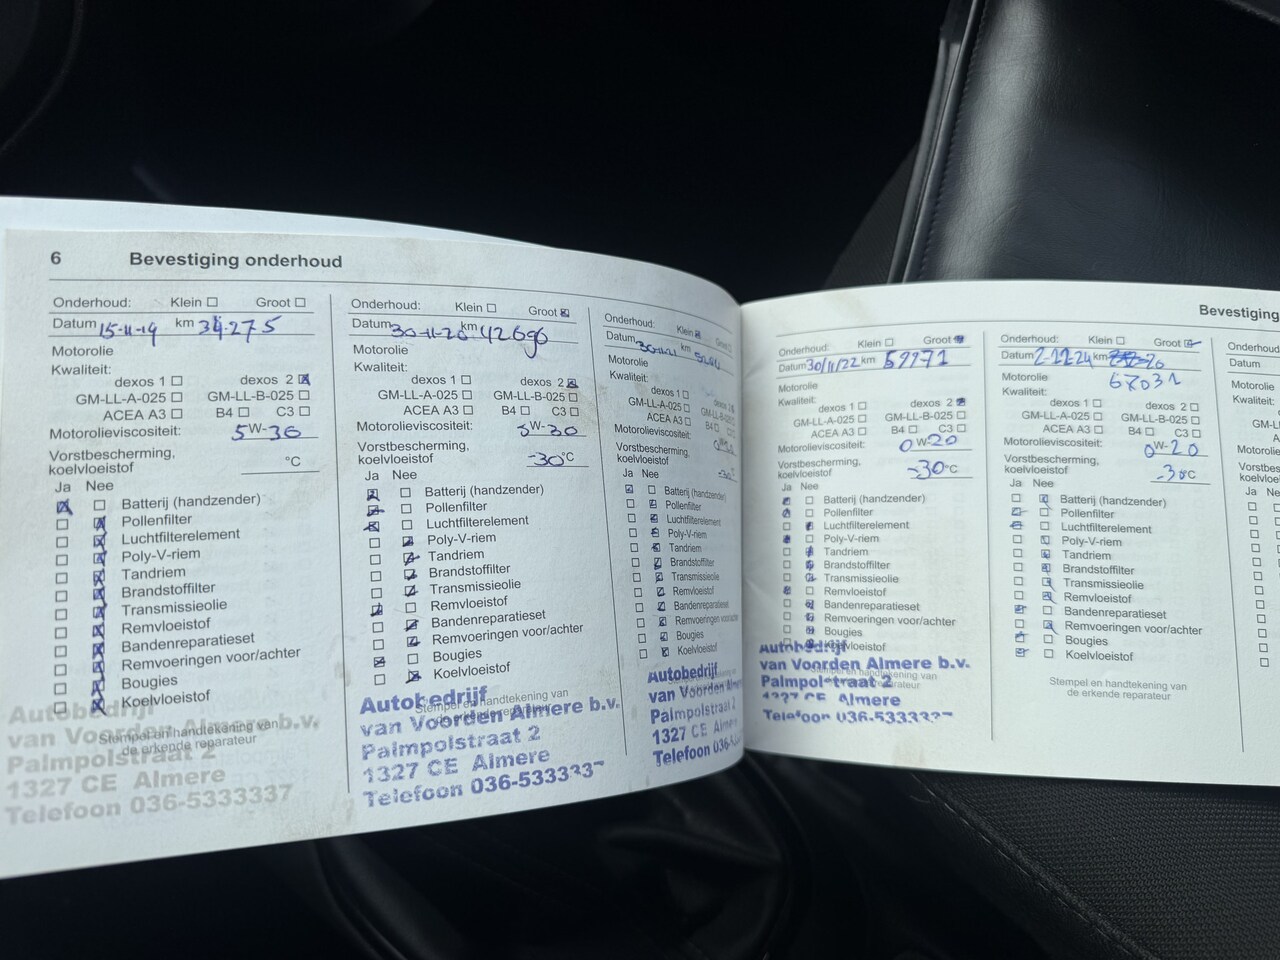 6 Bevestiging onderhoud
Onderhoud: Klein Groot
Datum 15-11-19 km 34.275
Motorolie
Kwaliteit:
dexos 1 dexos 2
GM-LL-A-025 GM-LL-B-025
ACEA A3 B4 C3
Motorolieviscositeit: 5W-30
Vorstbescherming,
koelvloeistof °C
Ja Nee
Batterij (handzender)
Pollenfilter
Luchtfilterelement
Poly-V-riem
Tandriem
Brandstoffilter
Transmissieolie
Remvloeistof
Bandenreparatieset
Remvoeringen voor/achter
Bougies
Koelvloeistof
Stempel en handtekening van
de erkende reparateur
Autobedrijf
van Voorden Almere b.v.
Palmpolstraat 2
1327 CE Almere
Telefoon 036-5333337
Onderhoud: Klein Groot
Datum 30-11-20 km 42696
Motorolie
Kwaliteit:
dexos 1 dexos 2
GM-LL-A-025 GM-LL-B-025
ACEA A3 B4 C3
Motorolieviscositeit: 5W-30
Vorstbescherming,
koelvloeistof -30°C
Ja Nee
Batterij (handzender)
Pollenfilter
Luchtfilterelement
Poly-V-riem
Tandriem
Brandstoffilter
Transmissieolie
Remvloeistof
Bandenreparatieset
Remvoeringen voor/achter
Bougies
Koelvloeistof
Stempel en handtekening van
de erkende reparateur
Autobedrijf
van Voorden Almere b.v.
Palmpolstraat 2
1327 CE Almere
Telefoon 036-533333
Onderhoud: Klein
Datum 30-11-21 km
Motorolie
Kwaliteit:
dexos 1 dexos 2
GM-LL-A-025 GM-LL-B-025
ACEA A3 B4
Motorolieviscositeit:
Vorstbescherming,
koelvloeistof -30
Ja Nee
Batterij (handzender)
Pollenfilter
Luchtfilterelement
Poly-V-riem
Tandriem
Brandstoffilter
Transmissieolie
Remvloeistof
Bandenreparatieset
Remvoeringen voor/achter
Bougies
Koelvloeistof
Autobedrijf
van Voorden Almere
Palmpolstraat
1327 CE
Telefoon 036-
Bevestiging
Onderhoud: Klein Groot
Datum 30/11/22 km 59971
Motorolie
Kwaliteit:
dexos 1 dexos 2
GM-LL-A-025 GM-LL-B-025
ACEA A3 B4 C3
Motorolieviscositeit: 0W-20
Vorstbescherming,
koelvloeistof -30°C
Ja Nee
Batterij (handzender)
Pollenfilter
Luchtfilterelement
Poly-V-riem
Tandriem
Brandstoffilter
Transmissieolie
Remvloeistof
Bandenreparatieset
Remvoeringen voor/achter
Bougies
Koelvloeistof
Autobedrijf
van Voorden Almere b.v.
Palmpolstraat 2
1327 CE Almere
Telefoon 036-53333
Onderhoud: Klein Groot
Datum 2-12-24 km
67031
Motorolie
Kwaliteit:
dexos 1 dexos 2
GM-LL-A-025 GM-LL-B-025
ACEA A3 B4 C3
Motorolieviscositeit: 0W-20
Vorstbescherming,
koelvloeistof -30°C
Ja Nee
Batterij (handzender)
Pollenfilter
Luchtfilterelement
Poly-V-riem
Tandriem
Brandstoffilter
Transmissieolie
Remvloeistof
Bandenreparatieset
Remvoeringen voor/achter
Bougies
Koelvloeistof
Stempel en handtekening van
de erkende reparateur
Datum
Ja